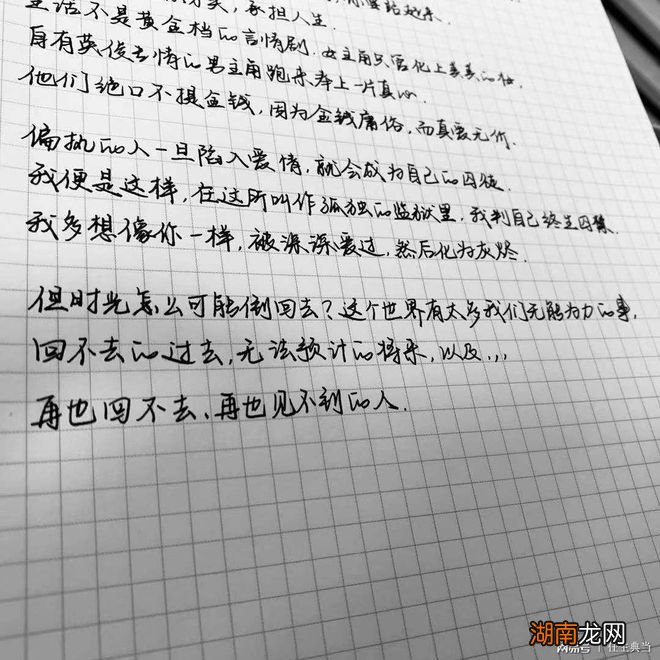 承担人生.
生活不是黄金档的言情剧.女主角只需化上美美的妆,
自有英俊多情的男主角跑来奉上一片真心.
他们绝口不提金钱,因为金钱庸俗,而真爱无价.
偏执的人一旦陷入爱情,就会成为自己的囚徒.
我便是这样,在这所叫作孤独的监狱里,我判自己终生囚禁.
我多想像你一样,被深深爱过,然后化为灰烬.
但时光怎么可能倒回去?这个世界有太多我们无能为力的事,
回不去的过去,无法预计的将来,以及...
再也回不去、再也见不到的人.
湖南龙网
网易号 | 任尘典当